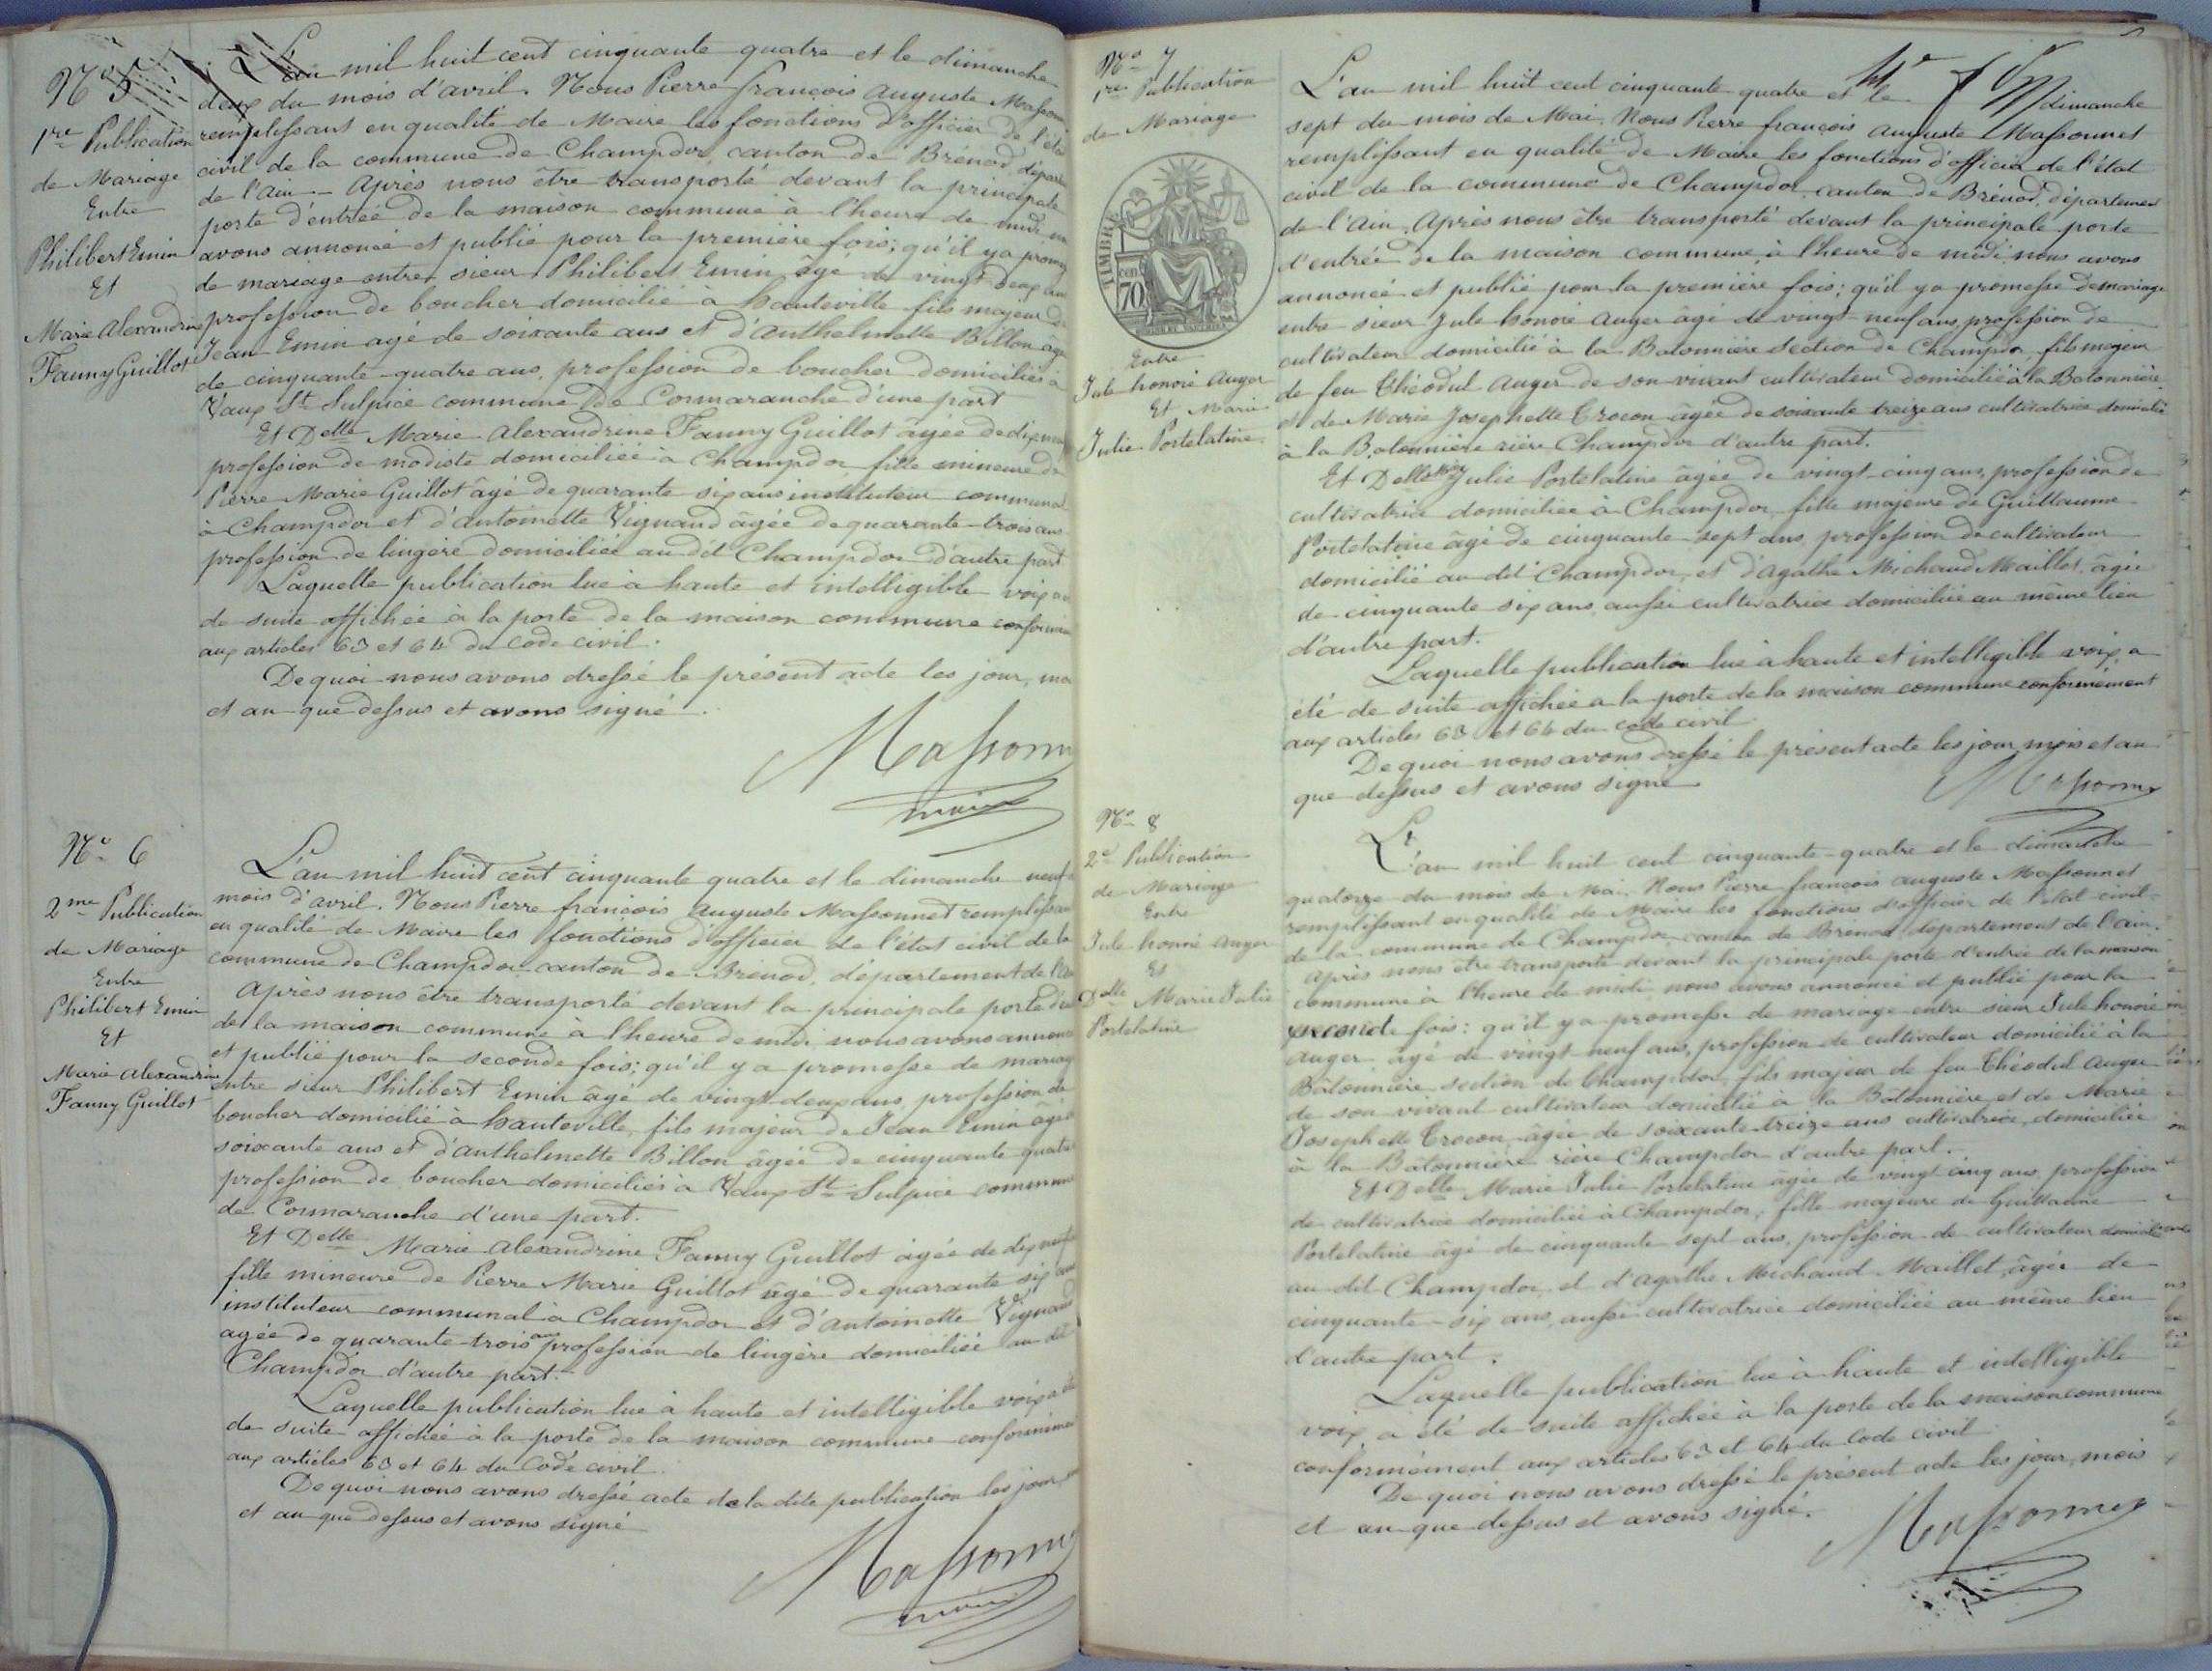 Nº 5
1re Publication
de Mariage
Entre
Philibert Emin
Et
Marie Alexandrine
Fanny Guillot
L'an mil huit cent cinquante quatre et le dimanche
deux du mois d'avril. Nous Pierre françois Auguste Massonn
remplissant en qualité de Maire les fonctions d'officier de l'état
civil de la commune de Champdor, canton de Brénod, départe
de l'Ain. Après nous être transporté devant la principale
porte d'entrée de la maison commune à l'heure de midi,
avons annoncé et publié pour la première fois; qu'il y a prome
de mariage entre sieur Philibert Emin âgé de vingt deux ans
profession de boucher domicilié à hauteville fils majeur de
Jean Emin agé de soixante ans et d'Anthelmette Billon âgé
de cinquante-quatre ans, profession de boucher domiciliés à
Vaux St Sulpice commune de Cormaranche d'une part
Et Delle Marie Alexandrine Fanny Guillot âgée de dix neuf
profession de modiste domiciliée à Champdor fille mineure de
Pierre Marie Guillot âgé de quarante six ans instituteur communal
à Champdor et d'antoinette Vignand âgée de quarante-trois ans
profession de lingère domiciliée au dit Champdor d'autre part
Laquelle publication lue à haute et intelligible voix a
de suite affichée à la porte de la maison commune conformém
aux articles 63 et 64 du Code civil.
De quoi nous avons dressé le présent acte les jour, mo
et an que dessus et avons signé.
Massonn
maire
Nº 6
2me Publication
de Mariage
Entre
Philibert Emin
Et
Marie Alexandrine
Fanny Guillot
L'an mil huit cent cinquante quatre et le dimanche neuf
mois d'avril. Nous Pierre françois Auguste Massonnet remplissan
en qualité de Maire les fonctions d'officier de l'état civil de la
commune de Champdor canton de Brénod, département de l'Ain
Après nous être transporté devant la principale porte
de la maison commune à l'heure de midi nous avons annoncé
et publié pour la seconde fois; qu'il y a promesse de mariag
entre sieur Philibert Emin âgé de vingt deux ans, profession de
boucher domicilié à hauteville, fils majeur de Jean Emin âgé
soixante ans et d'anthelmette Billon âgée de cinquante quatre
profession de boucher domiciliés à Vaux St Sulpice commune
de Cormaranche d'une part.
Et Delle Marie Alexandrine Fanny Guillot âgée de dix neuf
fille mineure de Pierre Marie Guillot âgé de quarante six ans
instituteur communal à Champdor et d'antoinette Vignand
agée de quarante-trois ans profession de lingère domiciliée au dit
Champdor d'autre part.
Laquelle publication lue à haute et intelligible voix a été
de suite affichée à la porte de la maison commune conformémen
aux articles 63 et 64 du Code civil.
De quoi nous avons dressé acte de la dite publication les jour
et an que dessus et avons signé
Massonn
maire
Nº 7
1re Publication
de Mariage
TIMBRE
70
Entre
Jule honoré Anger
Et Marie
Julie Portelatine
L'an mil huit cent cinquante quatre et le dimanche
sept du mois de Mai. Nous Pierre françois Auguste Massonnet
remplissant en qualité de Maire les fonctions d'officier de l'état
civil de la commune de Champdor canton de Brénod, département
de l'Ain. Après nous être transporté devant la principale porte
d'entrée de la maison commune, à l'heure de midi, nous avons
annoncé et publié pour la première fois; qu'il y a promesse de mariage
entre sieur Jule honoré Anger âgé de vingt neuf ans, profession de
cultivateur domicilié à la Batonnière section de Champdor, fils majeur
de feu Théodul Anger de son vivant cultivateur domicilié à la Batonnière,
et de Marie Josephette Crocon âgée de soixante treize ans cultivatrice domiciliée
à la Batonnière rière Champdor d'autre part.
Et Delle Marie Julie Portelatine âgée de vingt-cinq ans, profession de
cultivatrice domiciliée à Champdor, fille majeure de Guillaume
Portelatine âgé de cinquante-sept ans, profession de cultivateur
domicilié au dit Champdor, et d'Agathe Michaud Maillet, âgée
de cinquante six ans, aussi cultivatrice domiciliée au même lieu
d'autre part.
Laquelle publication lue à haute et intelligible voix, a
été de suite affichée a la porte de la maison commune conformément
aux articles 63 et 64 du code civil
De quoi nous avons dressé le présent acte les jour, mois et an
que dessus et avons signé
Massonnet
Nº 8
2e Publication
de Mariage
Entre
Jule honoré Anger
Et
Delle Marie Julie
Portelatine
L'an mil huit cent cinquante-quatre et le dimanche
quatorze du mois de Mai. Nous Pierre françois auguste Massonnet
remplissant en qualité de Maire les fonctions d'officier de l'état civil
de la commune de Champdor, canton de Brénod, département de l'ain.
Après nous être transporté devant la principale porte d'entrée de la maison
commune à l'heure de midi nous avons annoncé et publié pour la
seconde fois: qu'il y a promesse de mariage entre sieur Jule honoré
Anger âgé de vingt neuf ans, profession de cultivateur domicilié à la
Bâtonnière section de Champdor, fils majeur de feu Théodul Anger
de son vivant cultivateur domicilié à la Bâtonnière, et de Marie
Josephette Crocon, âgée de soixante-treize ans cultivatrice, domiciliée
à la Bâtonnière rière Champdor d'autre part.
Et Delle Marie Julie Portelatine âgée de vingt cinq ans, profession
de cultivatrice domiciliée à Champdor, fille majeure de Guillaume
Portelatine âgé de cinquante sept ans, profession de cultivateur domicilié
au dit Champdor, et d'Agathe Michaud Maillet, âgée de
cinquante-six ans, aussi cultivatrice domiciliée au même lieu
d'autre part.
Laquelle publication lue à haute et intelligible
voix a été de suite affichée à la porte de la maison commune
conformément aux articles 63 et 64 du Code civil
De quoi nous avons dressé le présent acte les jour, mois
et an que dessus et avons signé.
Massonnet